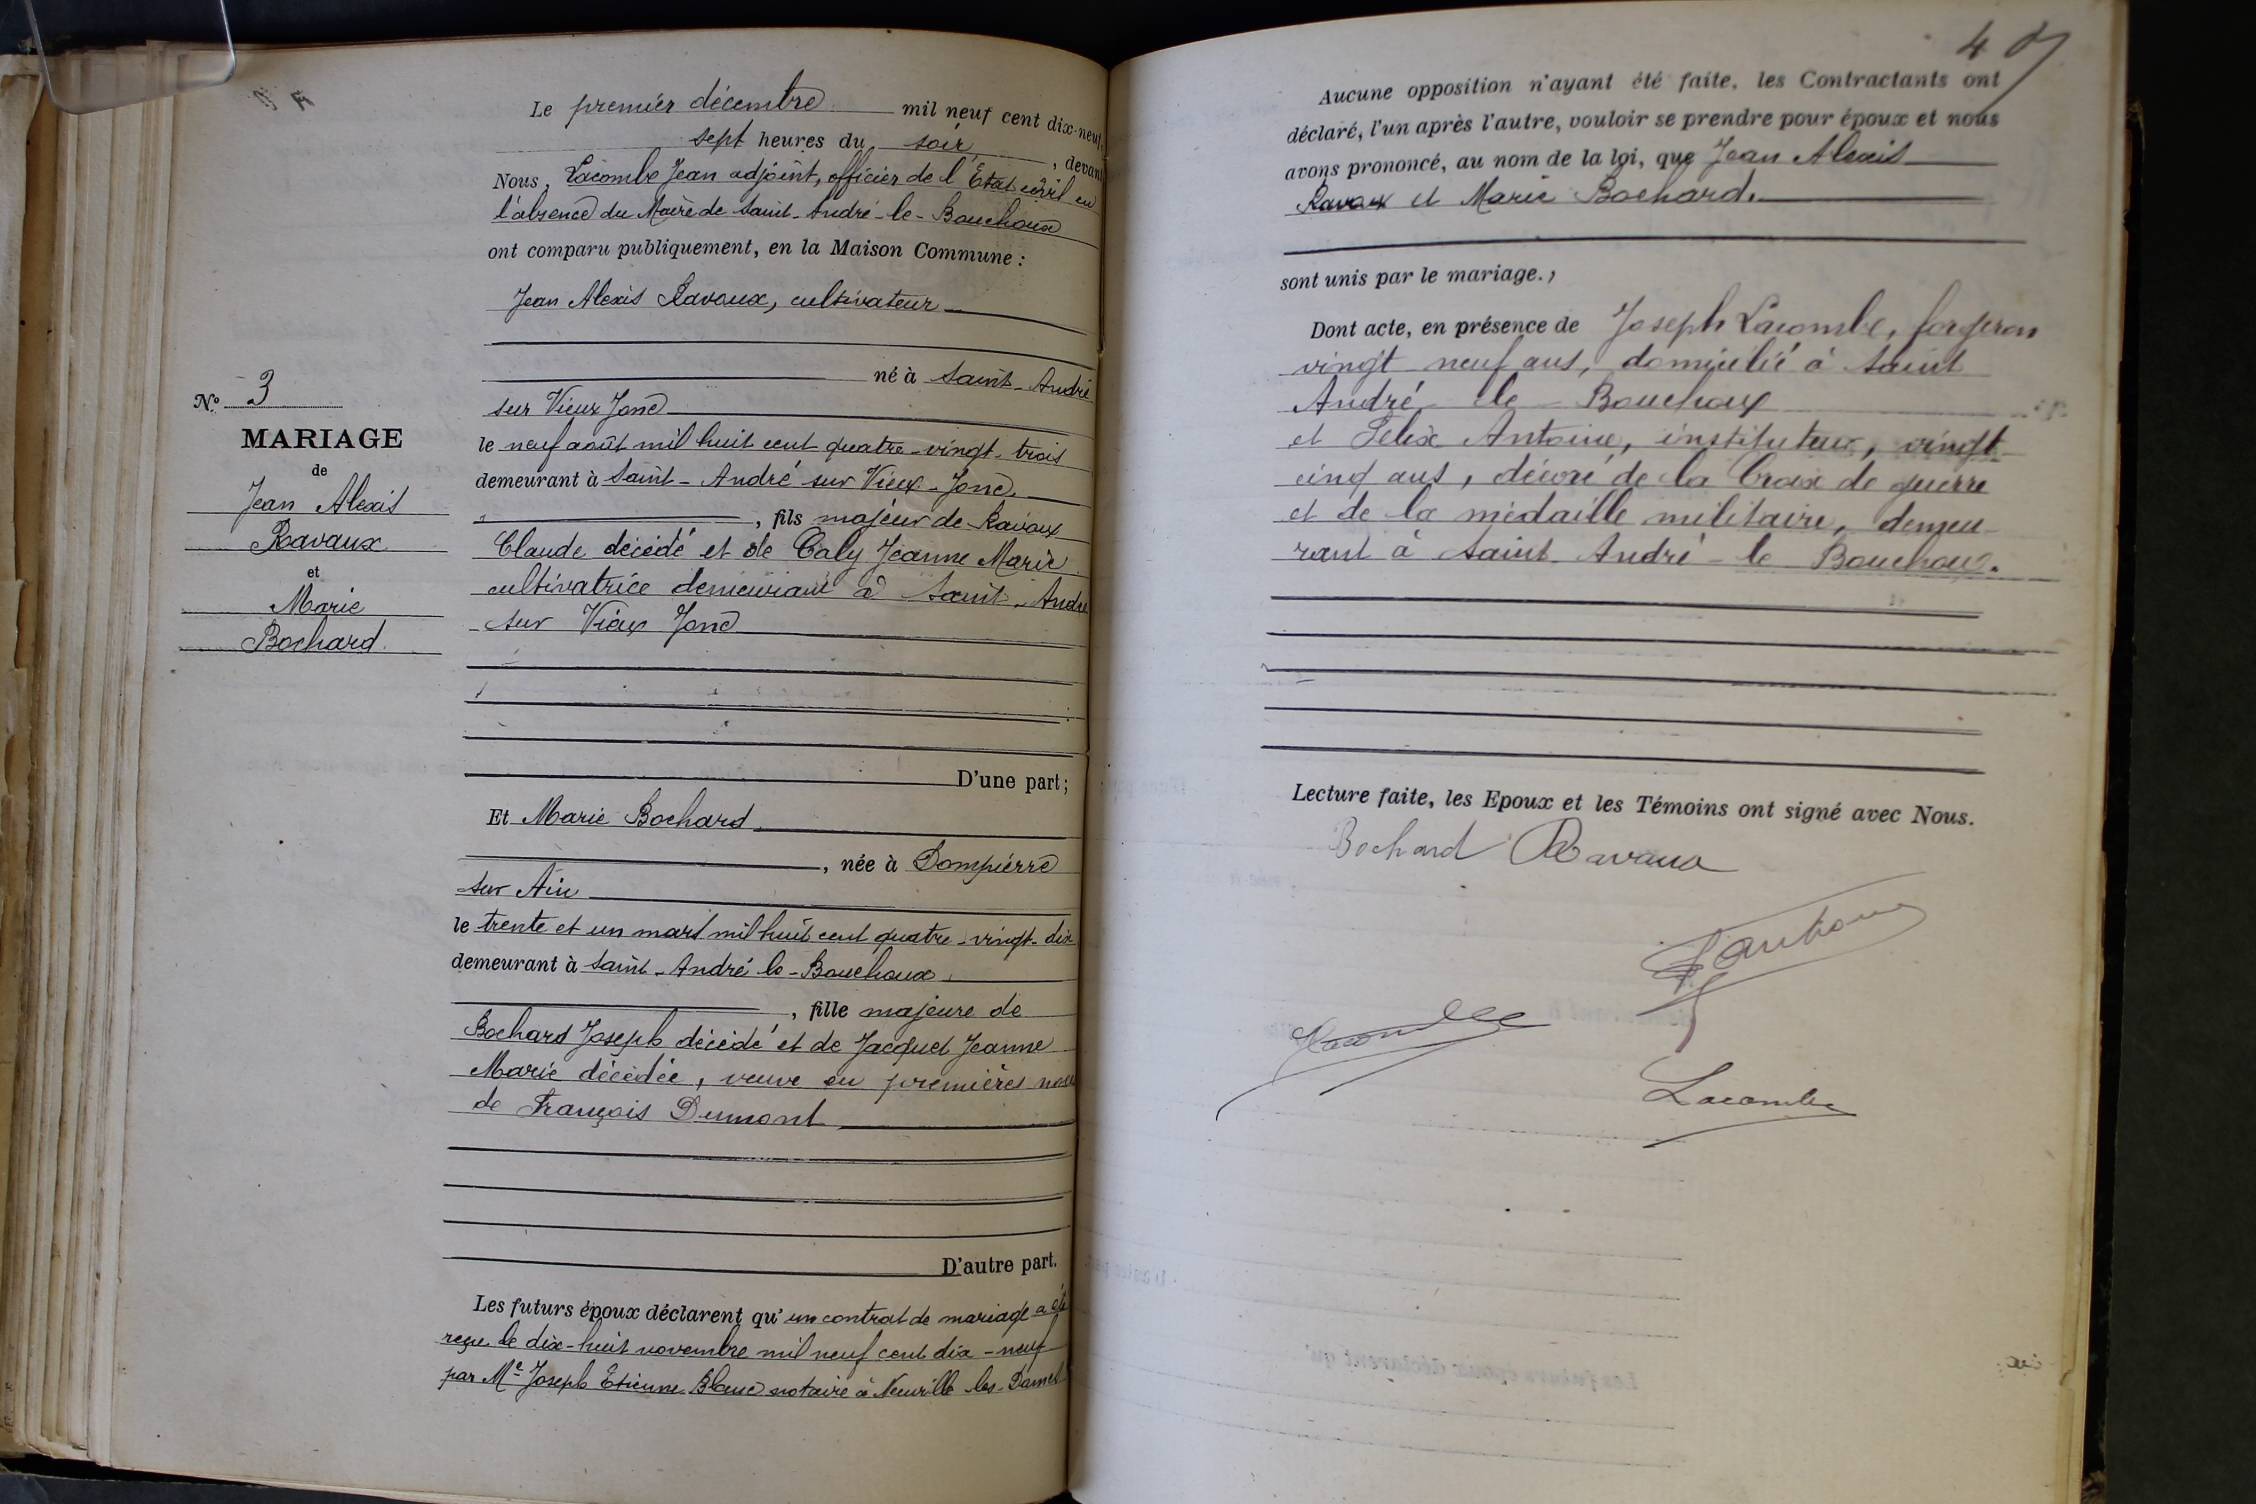 N° 3
MARIAGE
de
Jean Alexis
Ravaux
et
Marie
Bochard
Le premier décembre mil neuf cent dix-neuf,
sept heures du soir, devant
Nous, Lacombe Jean adjoint, officier de l'Etat civil en
l'absence du Maire de Saint-André-le-Bouchoux
ont comparu publiquement, en la Maison Commune :
Jean Alexis Ravaux, cultivateur
né à Saint-André
sur Vieux Jonc
le neuf août mil huit cent quatre-vingt-trois
demeurant à Saint-André sur Vieux-Jonc,
, fils majeur de Ravaux
Claude décédé et de Caly Jeanne Marie
cultivatrice demeurant à Saint-André
sur Vieux Jonc
D'une part;
Et Marie Bochard
, née à Dompierre
sur Ain
le trente et un mars mil huit cent quatre-vingt-dix
demeurant à Saint-André le-Bouchoux
, fille majeure de
Bochard Joseph décédé et de Jacquet Jeanne
Marie décédée, veuve en premières noces
de François Dumont
D'autre part.
Les futurs époux déclarent qu'un contrat de mariage a été
reçu le dix-huit novembre mil neuf cent dix-neuf
par Me Joseph Etienne Blanc notaire à Neuville-les-Dames
Aucune opposition n'ayant été faite, les Contractants ont
déclaré, l'un après l'autre, vouloir se prendre pour époux et nous
avons prononcé, au nom de la loi, que Jean Alexis
Ravaux et Marie Bochard.
sont unis par le mariage.,
Dont acte, en présence de Joseph Lacombe, forgeron
vingt neuf ans, domicilié à Saint
André le Bouchoux
et Félix Antoine, instituteur, vingt
cinq ans, décoré de la Croix de guerre
et de la médaille militaire, demeu-
rant à Saint-André-le Bouchoux.
Lecture faite, les Epoux et les Témoins ont signé avec Nous.
Bochard Ravaux
Lacombe
Lacombe